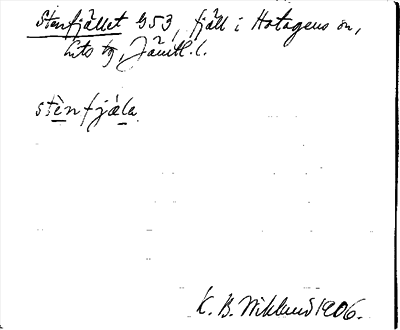 Stenfjället 953, fjäll i Hotagens sn,
Lits tg, Jämtl. l.
stènfjäla
K. B. Wiklund 1906.